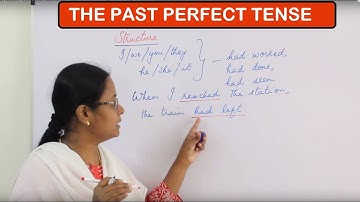 THE PAST PERFECT TENSE
Structure
I/we/you/they
he/she/it
– had worked,
had done,
had seen
When I reached the station,
the train had left